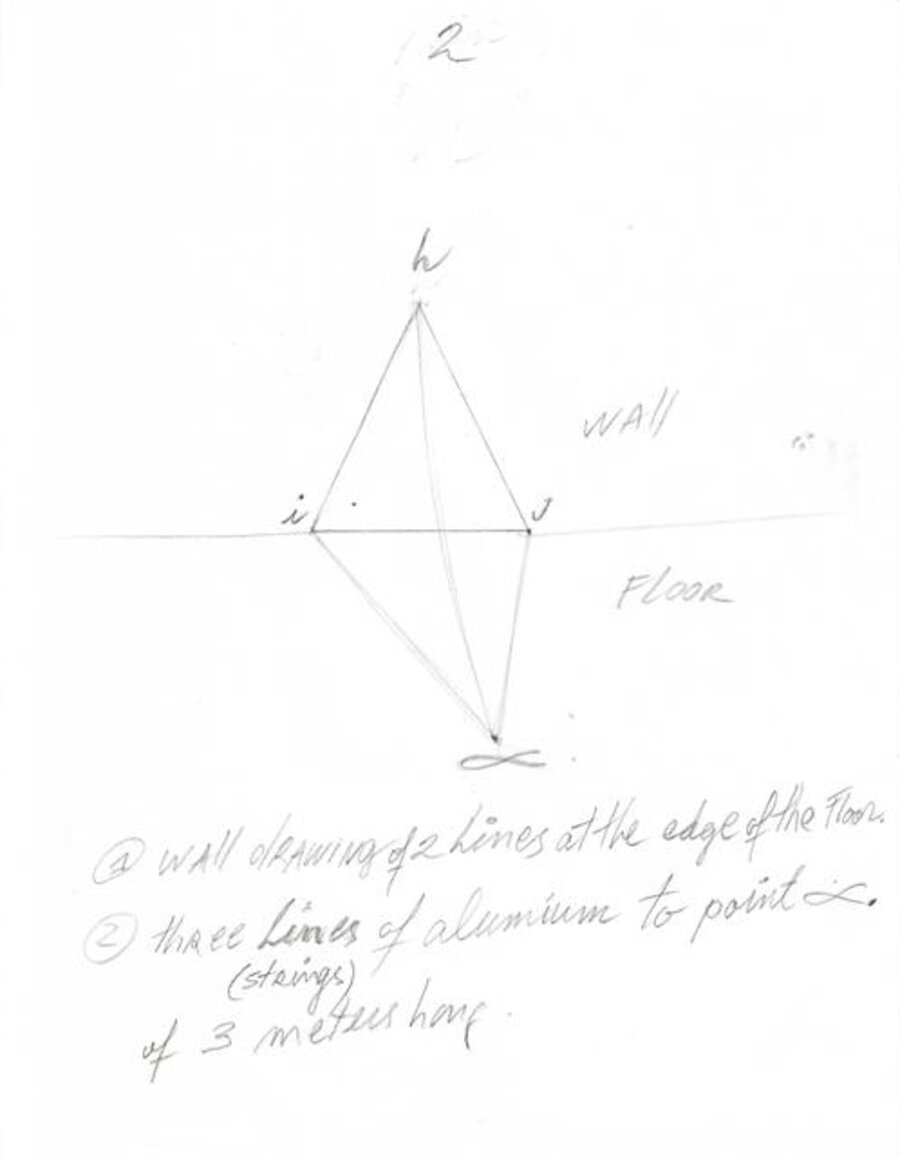 2
h
WALL
i
J
FLOOR
∝
① WALL DRAWING of 2 Lines at the edge of the Floor.
② three Lines of alumium to point ∝.
(strings)
of 3 meters long.